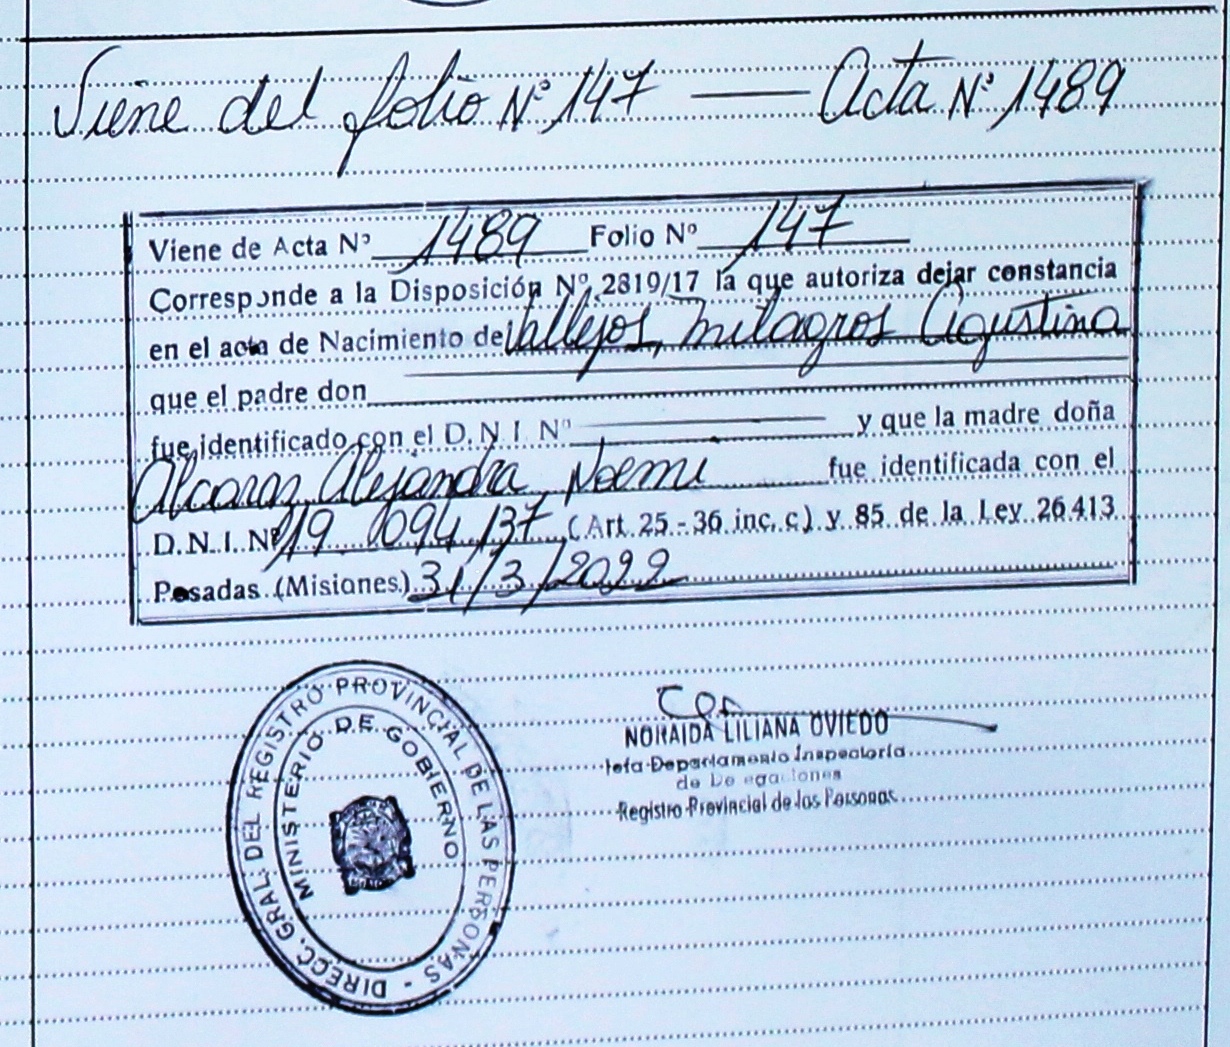 Viene del folio Nº 147 — Acta Nº 1489
Viene de Acta Nº 1489 Folio Nº 147
Corresponde a la Disposición Nº 2819/17 la que autoriza dejar constancia
en el acta de Nacimiento de Vallejos, Milagros Agustina
que el padre don
fue identificado con el D.N.I. Nº y que la madre doña
Alcaraz Alejandra, Noemi fue identificada con el
D.N.I. Nº 19.094.137 (Art. 25-36 inc. c) y 85 de la Ley 26413
Posadas (Misiones) 31/3/2022
DIRECC. GRAL. DEL REGISTRO PROVINCIAL DE LAS PERSONAS -
MINISTERIO DE GOBIERNO
NORAIDA LILIANA OVIEDO
Jefa Departamento Inspectoría
de Delegaciones
Registro Provincial de las Personas